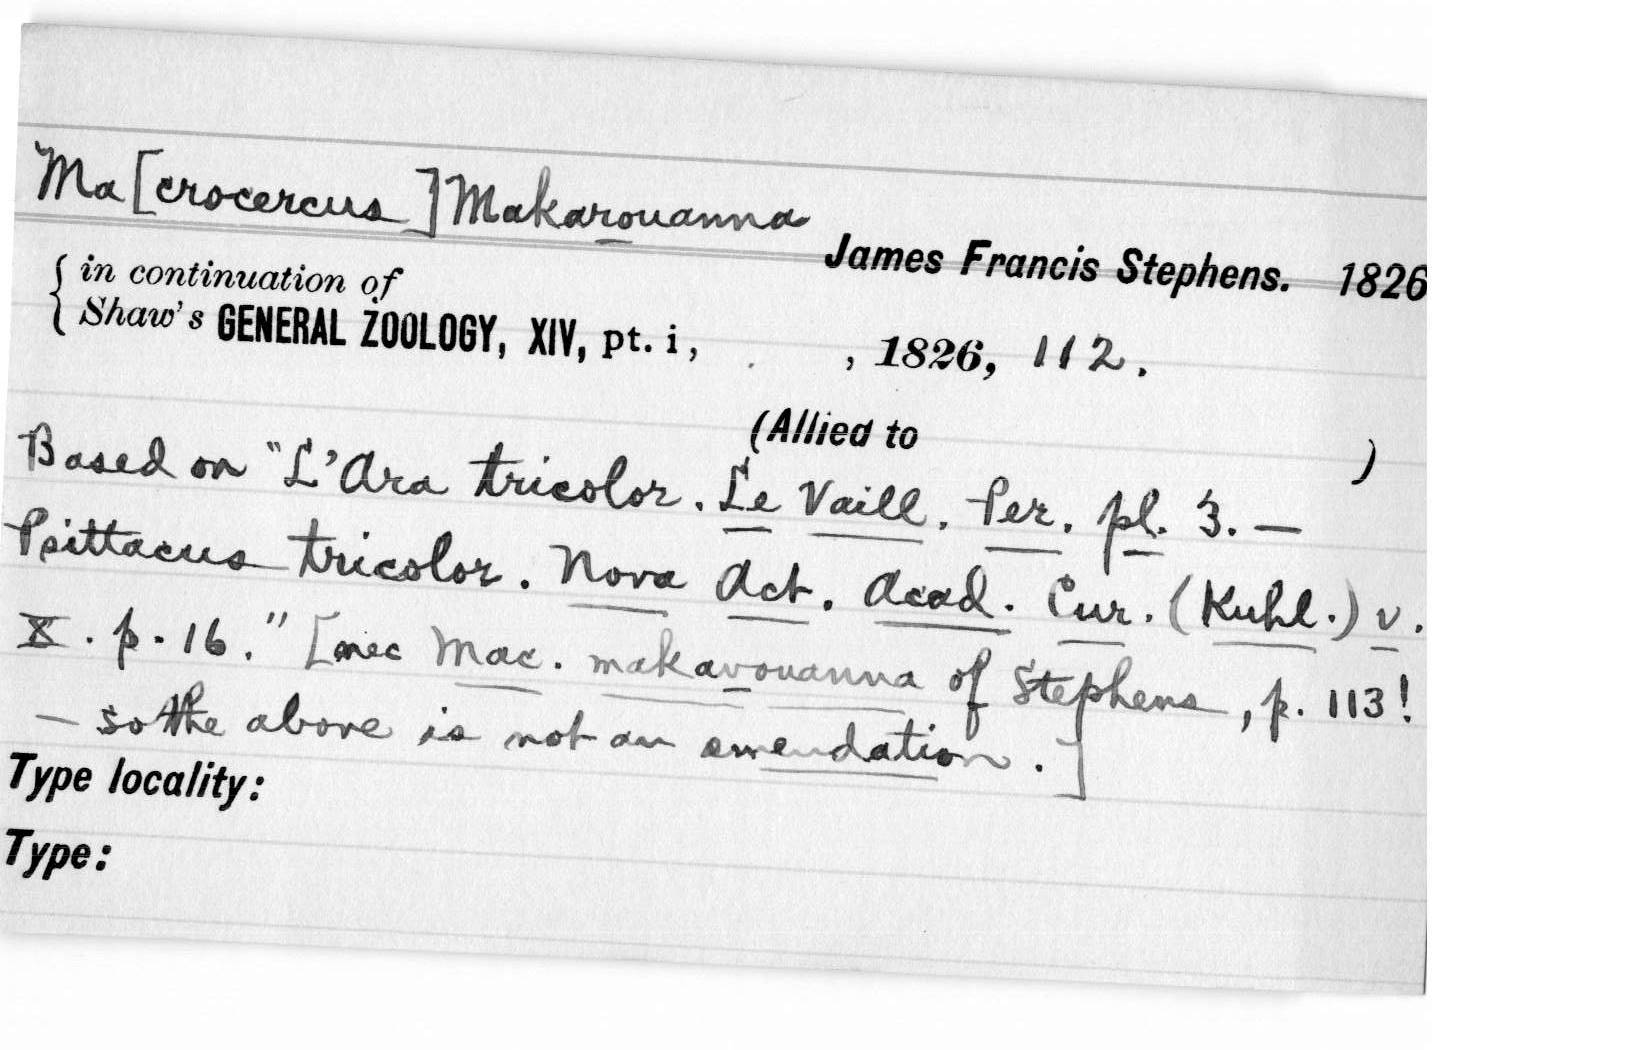 Ma[crocercus] Makarouanna
James Francis Stephens. 1826
in continuation of
Shaw's GENERAL ZOOLOGY, XIV, pt. i, , 1826, 112.
(Allied to )
Based on "L'Ara tricolor. Le Vaill. Per. pl. 3. —
Psittacus tricolor. Nova Act. Acad. Cur. (Kuhl.) v.
X. p. 16." [nec Mac. makavouanna of Stephens, p. 113!
— so the above is not an emendation.]
Type locality:
Type: